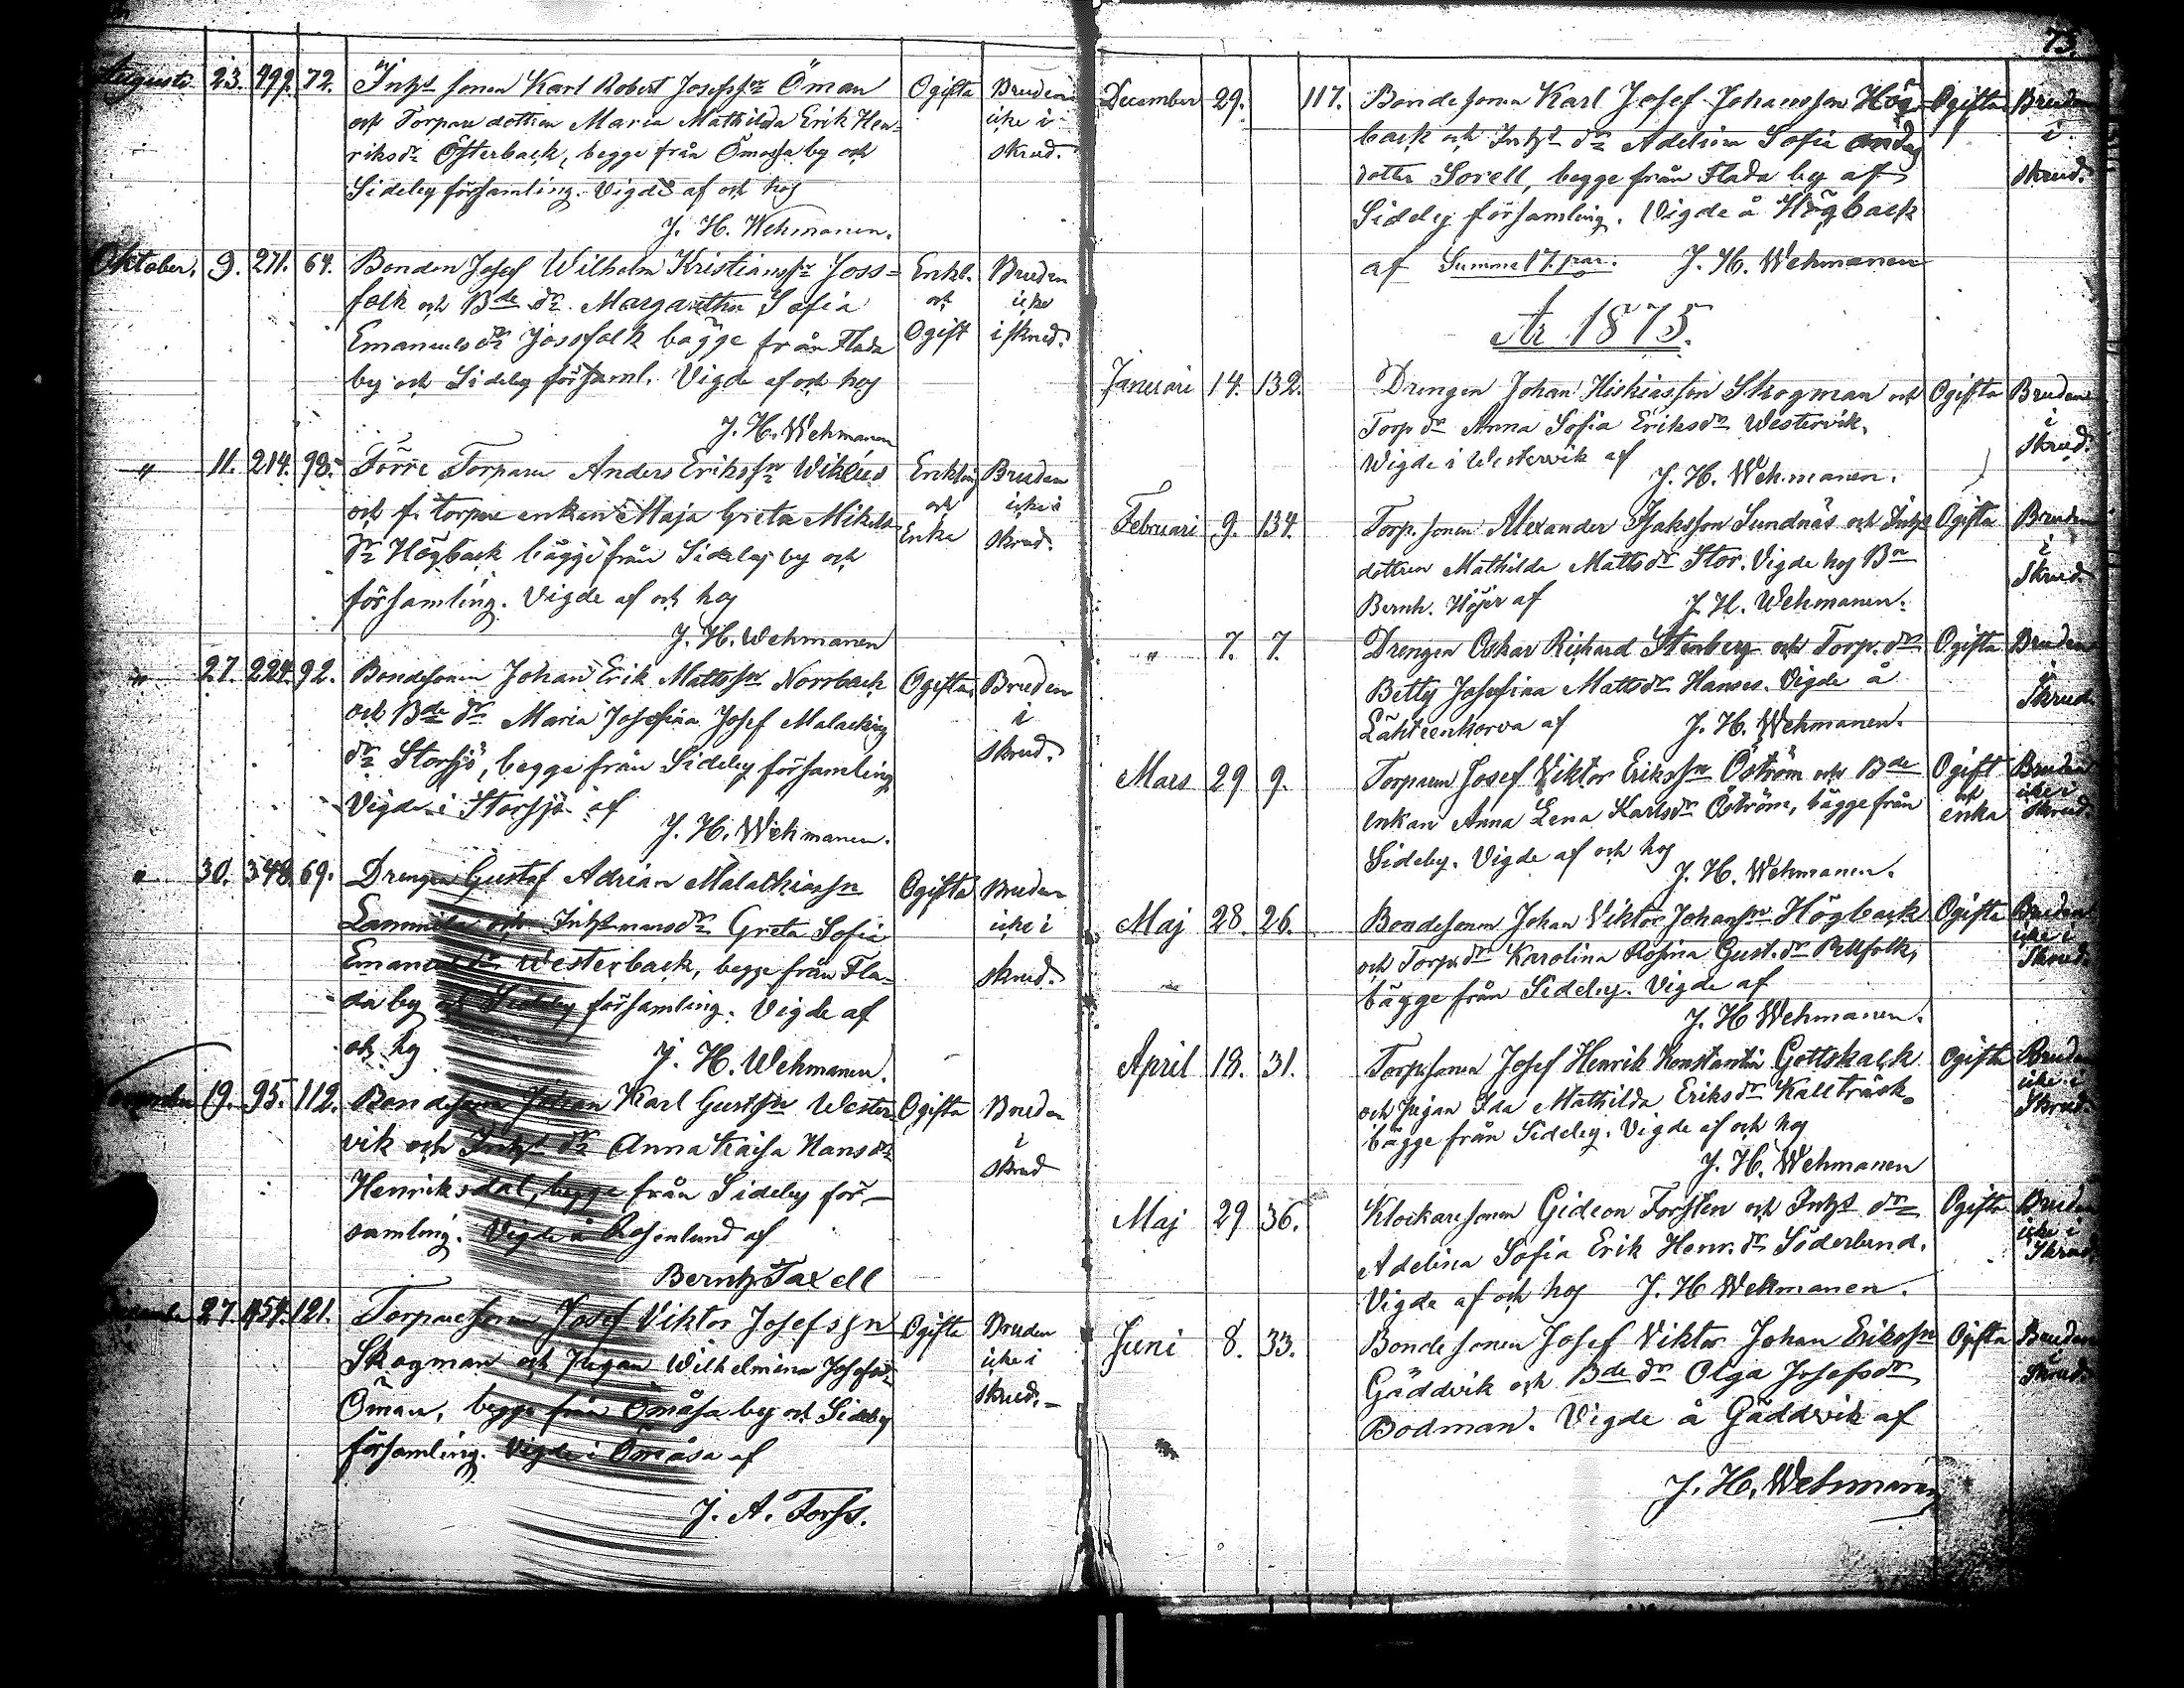 73
Augusti 23. 499. 72. Inhs sonen Karl Robert Josefsson Öman Ogifta Bruden
och Torpare dottren Maria Mathilda Erik Hen- icke i
riksdr Österback, begge från Ömossa by och skrud.
Sideby församling. Vigde af och hos
J. H. Wehmanen.
Oktober. 9. 271. 64. Bonden Josef Wilhelm Kristiansson Joss= Enkl. Bruden
folk och Bde dr Margaretha Sofia och icke
Emanuelsdr Jossfolk bägge från Flada Ogift i skrud.
by och Sideby församl. Vigde af och hos
J. H. Wehmanen
" 11. 214. 98. Förre Torparen Anders Eriksson Wiklus Enkling Bruden
och f. torpare enkan Maja Greta Mikels- och icke i
dr Högback bägge från Sideby by och Enka skrud.
församling. Vigde af och hos
J. H. Wehmanen
" 27. 224. 92. Bondesonen Johan Erik Mattsson Norrback Ogifta Bruden
och Bde dr Maria Josefina Josef Malackias i
dr Storsjö, begge från Sideby församling skrud.
Vigde i Storsjö af
J. H. Wehmanen.
" 30. 348. 69. Drengen Gustaf Adrian Malakiassn Ogifta Bruden
och Inhsmansdr Greta Sofia icke i
Emanuelsdr Westerback, begge från Fla= skrud.
da by och Sideby församling. Vigde af
och hos J. H. Wehmanen.
19. 95. 112. Bondesonen Johan Karl Gustssn Wester Ogifta Bruden
vik och Inhs dr Anna Kaisa Hansdr i
Henriksdal, begge från Sideby för- skrud
samling. Vigde å Rosenlund af
Bernh Taxell
27. 454. 121. Torparesonen Josef Viktor Josefssn Ogifta Bruden
Skogman och Pigan Wilhelmina Josefsdr icke i
Öman, begge från Ömossa by och Sideby skrud.
församling. Vigde i Ömossa af
J. A. Forss.
December 29. 117. Bondesonen Karl Josef Johansson Hög- Ogifta Bruden
back och Inhs dr Adelina Sofia Anders i
dotter Sorell, begge från Flada by af skrud.
Sideby församling. Vigde å Högback
af Summa 17 par. J. H. Wehmanen
År 1875.
Januari 14. 132. Drengen Johan Hiskiasson Skogman och Ogifta Bruden
Torp dr Anna Sofia Eriksdr Westervik. i
Wigde i Westervik af skrud.
J. H. Wehmanen.
Februari 9. 134. Torp. sonen Alexander Isaksson Sundnäs och Inhs Ogifta Bruden
dottren Mathilda Mattsdr Stor. Vigde hos Bn i
Bernh. Höjer af J. H. Wehmanen. Skrud.
" 7. 7. Drengen Oskar Rickard Stenberg och Torp. dr Ogifta Bruden
Betty Josefina Mattsdr Hanses. Vigde å i
Lähteenkorva af J. H. Wehmanen. Skrud.
Mars 29 9. Torparen Josef Viktor Eriksson Öström och Bde Ogift Bruden
enkan Anna Lena Karlsdr Öström, bägge från och enka icke i skrud.
Sideby. Vigde af och hos
J. H. Wehmanen.
Maj 28. 26. Bondesonen Johan Viktor Johansson Högback Ogifta Bruden
och Torp. dr Karolina Rosina Gust. dr Pellfolk, icke i
bägge från Sideby. Vigde af Skrud.
J. H Wehmanen.
April 18. 31. Torpsonen Josef Henrik Konstantin Gottskalk Ogifta Bruden
och pigan Ida Mathilda Eriksdr Kallträsk icke i
bägge från Sideby. Vigde af och hos Skrud.
J. H. Wehmanen
Maj 29 36. Klockaresonen Gideon Forstén och Inhs dr Ogifta Bruden
Adelina Sofia Erik Henr. dr Söderlund. icke i
Vigde af och hos J. H Wehmanen. Skrud.
Juni 8. 33. Bondesonen Josef Viktor Johan Eriksson Ogifta Bruden
Gäddvik och Bde dr Olga Josefsdr Skrud.
Bodman. Vigde å Gäddvik af
J. H. Wehmanen